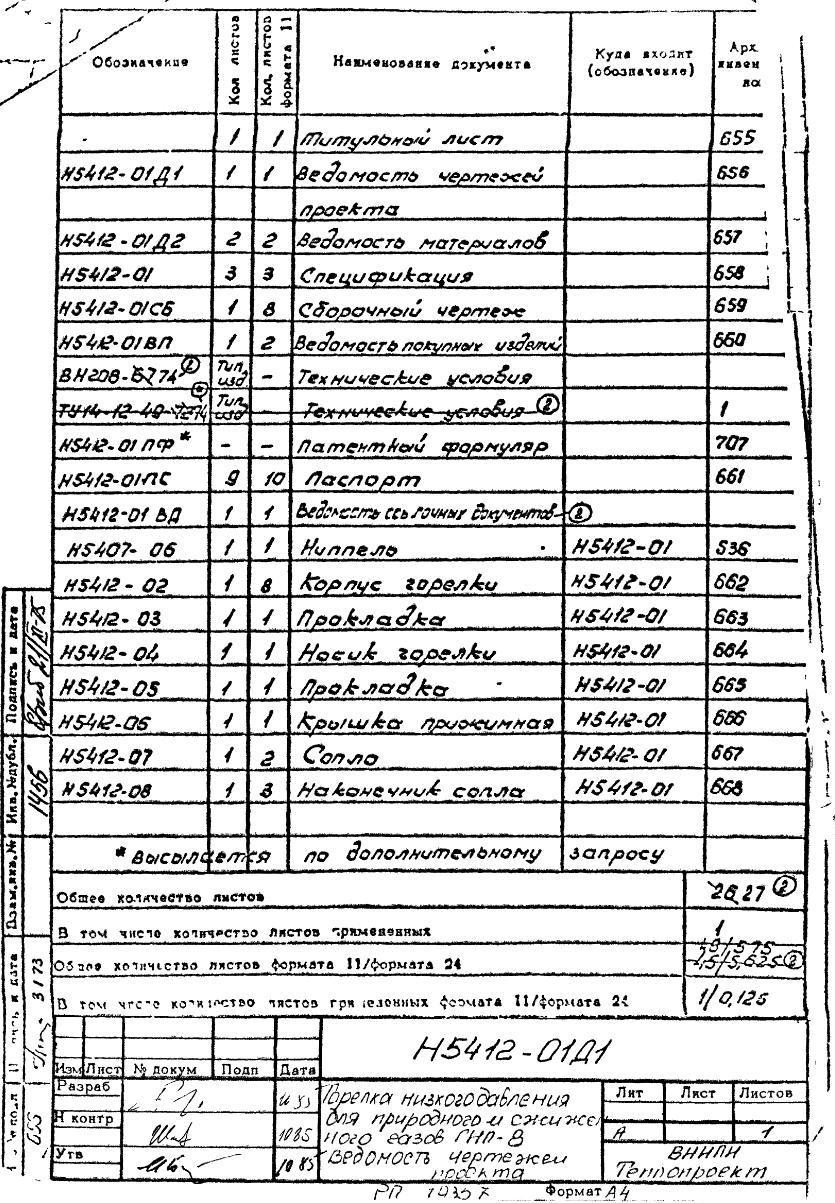 Обозначение Кол листов Кол. листов формата 11 Наименование документа Куда входит (обозначение) Арх.
1 1 Титульный лист 655
Н5412-01Д1 1 1 Ведомость чертежей 656
проекта
Н5412-01Д2 2 2 Ведомость материалов 657
Н5412-01 3 3 Спецификация 658
Н5412-01СБ 1 8 Сборочный чертеж 659
Н5412-01ВП 1 2 Ведомость покупных изделий 660
ВН208-67 74 ② Тип. изд – Технические условия
ТУ14-12-49-72 74 Тип. изд – Технические условия ② 1
Н5412-01ПФ* – – Патентный формуляр 707
Н5412-01ПС 9 10 Паспорт 661
Н5412-01 ВД 1 1 Ведомость ссылочных документов ②
Н5407-06 1 1 Ниппель Н5412-01 536
Н5412-02 1 8 Корпус горелки Н5412-01 662
Н5412-03 1 1 Прокладка Н5412-01 663
Н5412-04 1 1 Носик горелки Н5412-01 664
Н5412-05 1 1 Прокладка Н5412-01 665
Н5412-06 1 1 Крышка прижимная Н5412-01 666
Н5412-07 1 2 Сопло Н5412-01 667
Н5412-08 1 3 Наконечник сопла Н5412-01 668
* Высылается по дополнительному запросу
Общее количество листов 26 27 ②
В том числе количество листов примененных 1
Общее количество листов формата 11/формата 24 45/5,625 ②
В том числе количество листов примененных формата 11/формата 24 1/0,125
Н5412-01Д1
Изм Лист № докум Подп Дата
Разраб 10 85
Н контр 10 85
Утв 10 85
Горелка низкого давления
для природного и сжижен
ного газов ГНП-8
Ведомость чертежей
проекта
Лит Лист Листов
А 1
ВНИПИ
Теплопроект
Формат А4
Подпись и дата
Инв.№дубл. 1456
Взам.инв.№
3 1 73
655